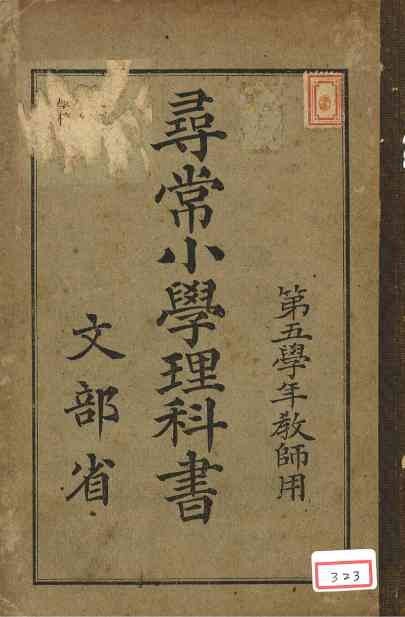 第五學年教師用
尋常小學理科書
文部省
323